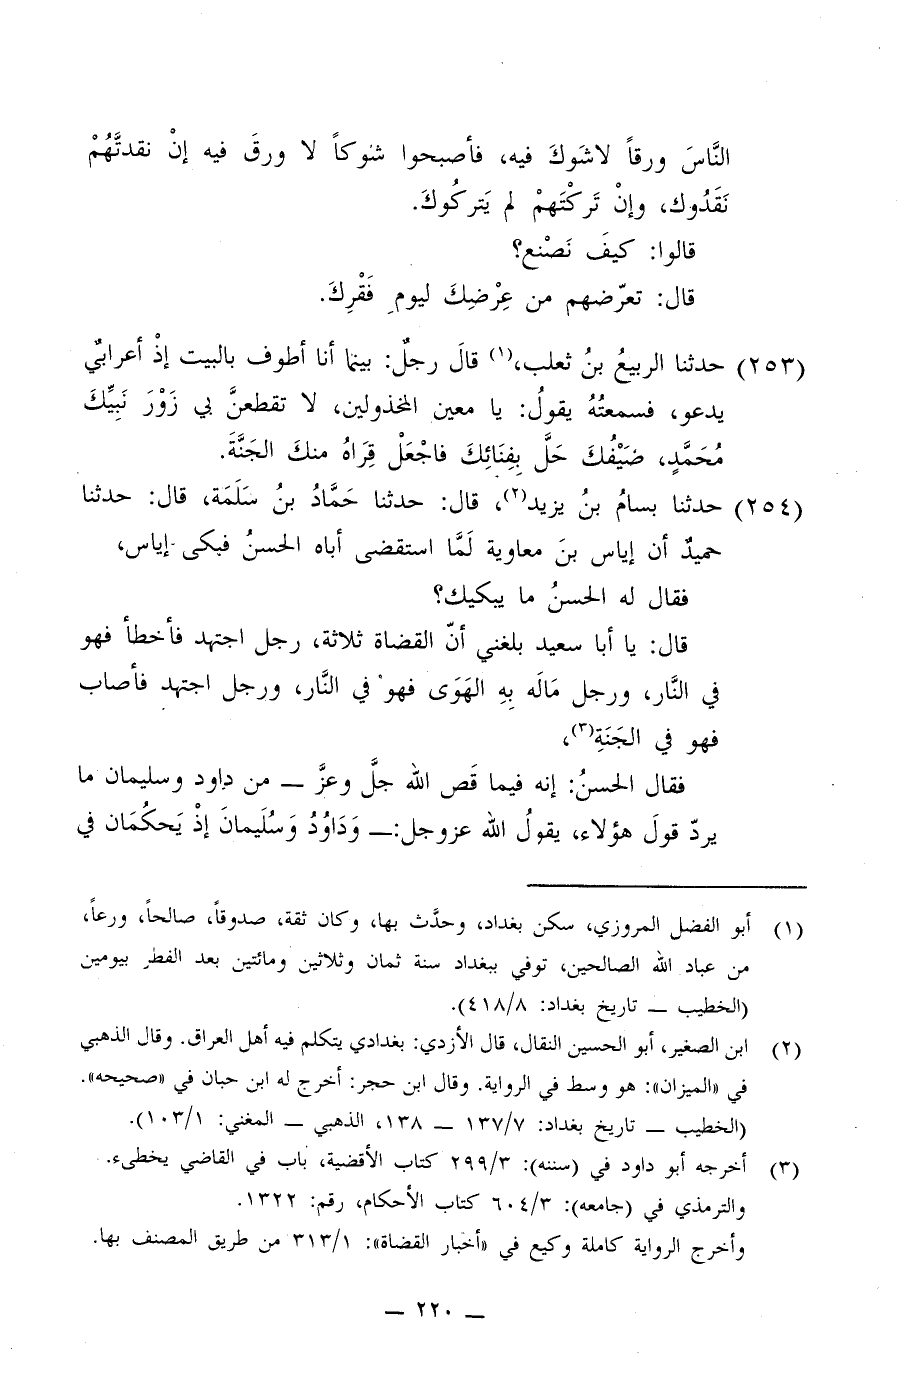 النَّاسَ ورقاً لاشَوكَ فيه، فأصبحوا شوكاً لا ورقَ فيه إنْ نقدتَّهُمْ
نَقَدُوك، وإنْ تَركْتَهمْ لم يَتركُوكَ.
قالوا: كيفَ نَصْنع؟
قال: تعرّضهم من عِرْضِكَ ليومِ فَقْرِكَ.
(٢٥٣) حدثنا الربيعُ بنُ ثعلب،(١) قالَ رجلٌ: بينما أنا أطوف بالبيت إذْ أعرابيٌ
يدعو، فسمعتُهُ يقولُ: يا معين المخذولين، لا تقطعنَّ بي زَوْرَ نَبيِّكَ
مُحَمَّدٍ، ضَيْفُكَ حَلَّ بِفِنَائِكَ فاجْعَلْ قِرَاهُ منكَ الجَنَّةَ.
(٢٥٤) حدثنا بسامُ بنُ يزيد(٢)، قال: حدثنا حَمَّادُ بنُ سَلَمَة، قال: حدثنا
حميدٌ أن إياس بنَ معاوية لَمَّا استقضى أباه الحسنُ فبكى إياس،
فقال له الحسنُ ما يبكيك؟
قال: يا أبا سعيد بلغني أنّ القضاة ثلاثة، رجل اجتهد فأخطأ فهو
في النَّار، ورجل مَالَه بِهِ الهَوَى فهو في النَّار، ورجل اجتهد فأصاب
فهو في الجَنَةِ(٣)،
فقال الحسنُ: إنه فيما قَص الله جلَّ وعزَّ — من داود وسليمان ما
يردّ قولَ هؤلاء، يقولُ الله عزوجل:— وَدَاوُدُ وَسُلَيمانَ إذْ يَحكُمَان في
(١) أبو الفضل المروزي، سكن بغداد، وحدَّث بها، وكان ثقة، صدوقاً، صالحاً، ورعاً،
من عباد الله الصالحين، توفي ببغداد سنة ثمان وثلاثين ومائتين بعد الفطر بيومين
(الخطيب — تاريخ بغداد: ٤١٨/٨).
(٢) ابن الصغير، أبو الحسين النقال، قال الأزدي: بغدادي يتكلم فيه أهل العراق. وقال الذهبي
في «الميزان»: هو وسط في الرواية. وقال ابن حجر: أخرج له ابن حبان في «صحيحه».
(الخطيب — تاريخ بغداد: ١٣٧/٧ — ١٣٨، الذهبي — المغني: ١٠٣/١).
(٣) أخرجه أبو داود في (سننه): ٢٩٩/٣ كتاب الأقضية، باب في القاضي يخطىء.
والترمذي في (جامعه): ٦٠٤/٣ كتاب الأحكام، رقم: ١٣٢٢.
وأخرج الرواية كاملة وكيع في «أخبار القضاة»: ٣١٣/١ من طريق المصنف بها.
— ٢٢٠ —